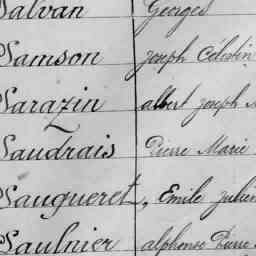 Salvan Georges
Samson Joseph Célestin
Sarazin albert joseph
Saudrais Pierre Marie
Saugueret, Emile Julien
Saulnier alphonse Pierre